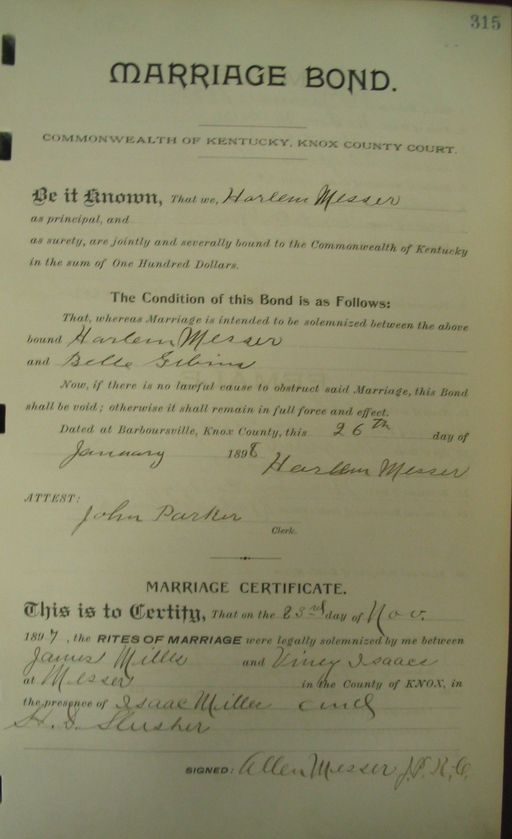 315
MARRIAGE BOND.
COMMONWEALTH OF KENTUCKY, KNOX COUNTY COURT.
Be it Known, That we, Harlem Messer
as principal, and
as surety, are jointly and severally bound to the Commonwealth of Kentucky
in the sum of One Hundred Dollars.
The Condition of this Bond is as Follows:
That, whereas Marriage is intended to be solemnized between the above
bound Harlem Messer
and Belle
Now, if there is no lawful cause to obstruct said Marriage, this Bond
shall be void; otherwise it shall remain in full force and effect.
Dated at Barboursville, Knox County, this 26th day of
January 1898 Harlem Messer
ATTEST:
John Parker
Clerk.
MARRIAGE CERTIFICATE.
This is to Certify, That on the 23rd day of Nov.
1897, the RITES OF MARRIAGE were legally solemnized by me between
James Mills and Viney Isaacs
at Messer in the County of KNOX, in
the presence of Isaac Mills and
Slusher
SIGNED: Allen Messer J.P.K.C.